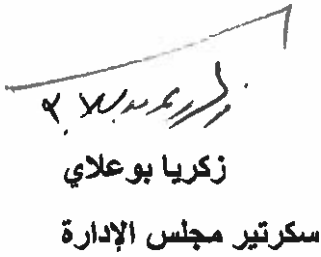 زكريا بوعلاي
سكرتير مجلس الإدارة